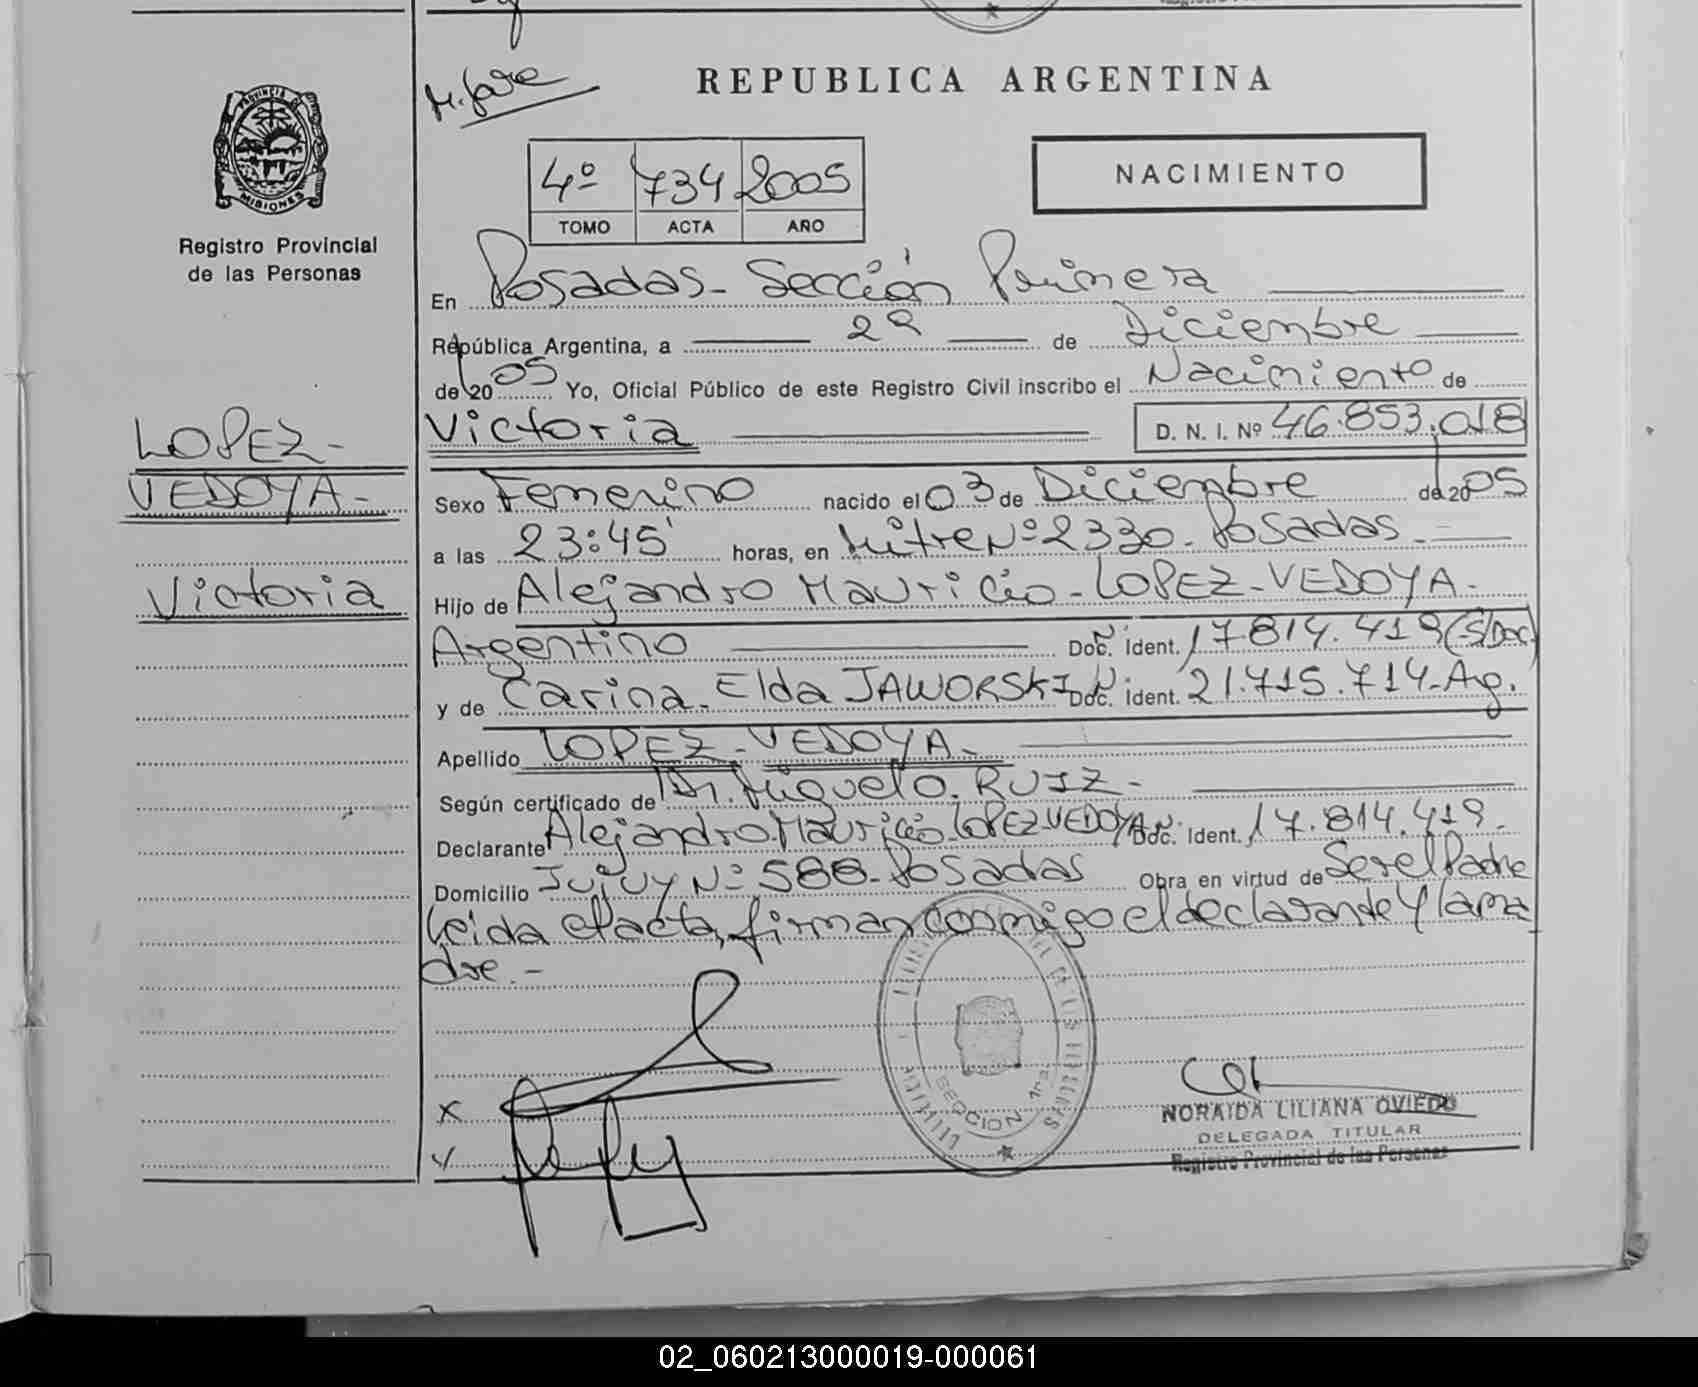 REPUBLICA ARGENTINA
PROVINCIA DE
MISIONES
Registro Provincial
de las Personas
4º 734 2005
TOMO ACTA AÑO
NACIMIENTO
En Posadas - Sección Primera
República Argentina, a de Diciembre
de 2005 Yo, Oficial Público de este Registro Civil inscribo el Nacimiento de
Victoria D. N. I. Nº 46.853.018
LOPEZ-
VEDOYA-
Victoria
Sexo Femenino nacido el 03 de Diciembre de 2005
a las 23:45 horas, en Mitre Nº 2330. Posadas.
Hijo de Alejandro Mauricio - LOPEZ-VEDOYA-
Argentino Doc. Ident. 17.814.419 (S/Doc)
y de Carina. Elda JAWORSKI Nº Doc. Ident. 21.715.714-Ag.
Apellido LOPEZ-VEDOYA-
Según certificado de Dr. Miguel O. RUIZ-
Declarante Alejandro Mauricio LOPEZ-VEDOYA Nº Doc. Ident. 17.814.419-
Domicilio Jujuy Nº 588-Posadas Obra en virtud de Ser el Padre
Leida el acta, firman conmigo el declarante y la ma-
dre.-
SECCION 1ra.
X
NORAIDA LILIANA OVIEDO
DELEGADA TITULAR
Registro Provincial de las Personas
02_060213000019-000061